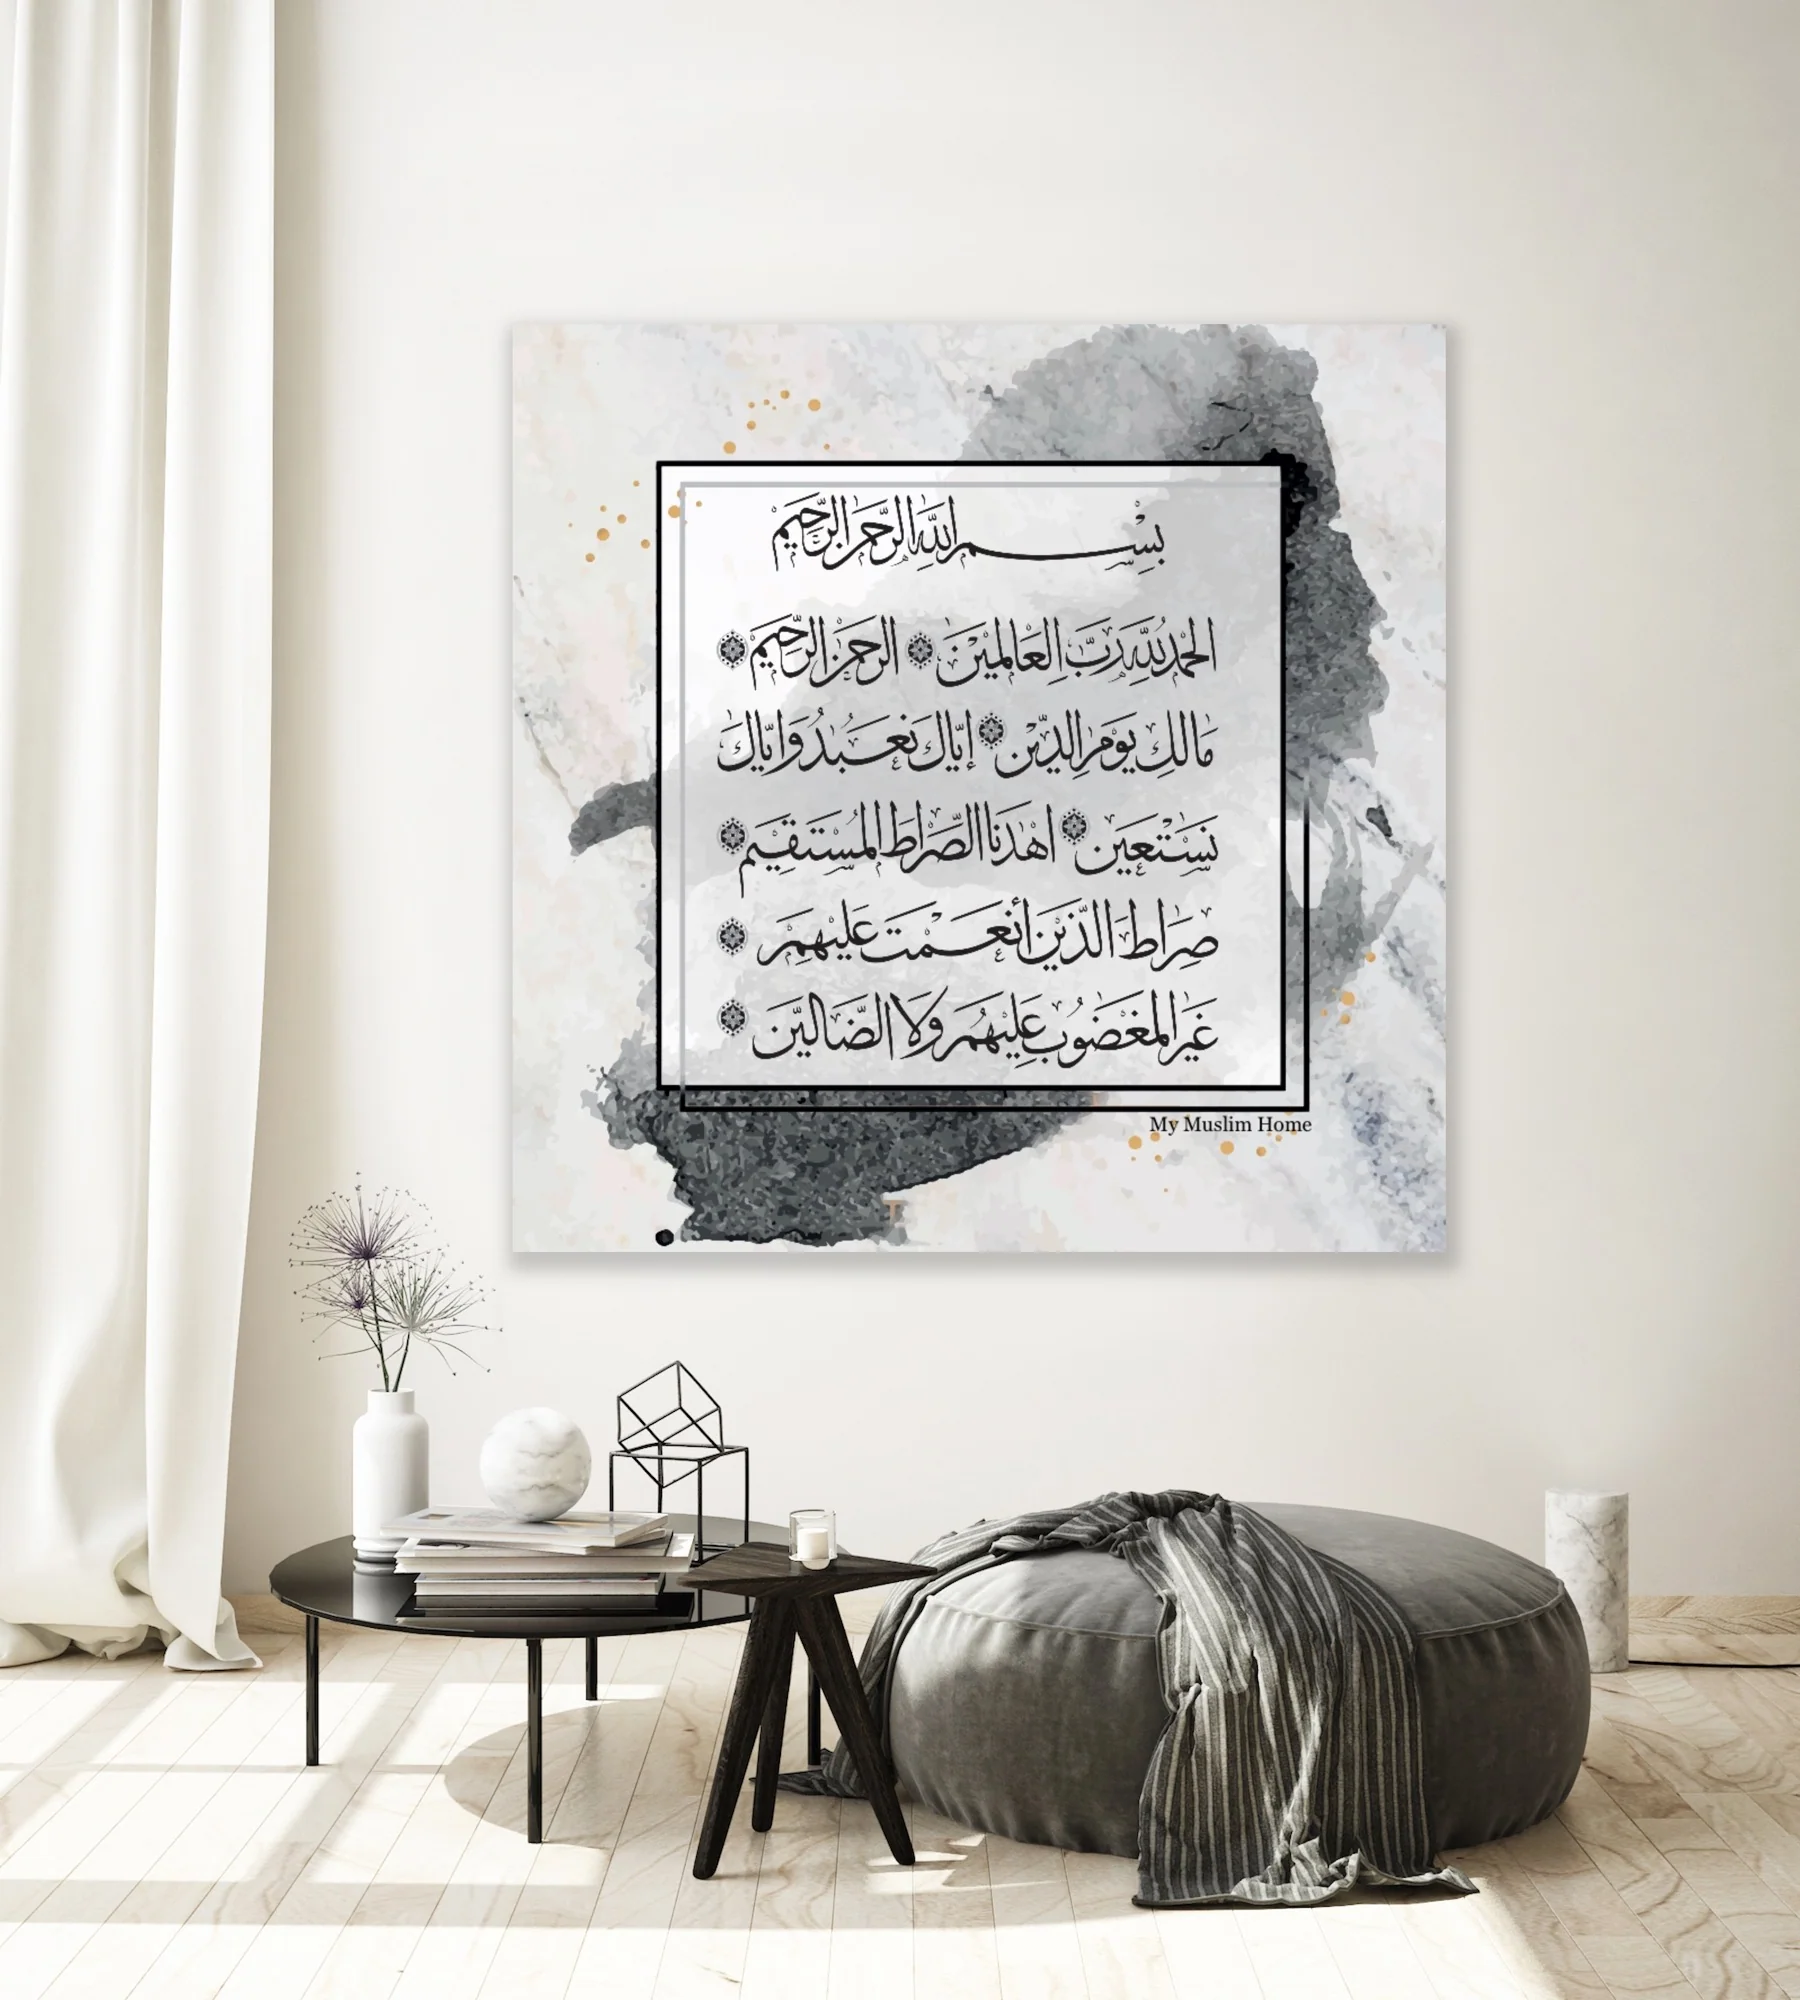 بِسْمِ اللَّهِ الرَّحْمَنِ الرَّحِيمِ
الْحَمْدُ لِلَّهِ رَبِّ الْعَالَمِينَ ۞ الرَّحْمَنِ الرَّحِيمِ ۞
مَالِكِ يَوْمِ الدِّينِ ۞ إِيَّاكَ نَعْبُدُ وَإِيَّاكَ
نَسْتَعِينُ ۞ اهْدِنَا الصِّرَاطَ الْمُسْتَقِيمَ ۞
صِرَاطَ الَّذِينَ أَنْعَمْتَ عَلَيْهِمْ ۞
غَيْرِ الْمَغْضُوبِ عَلَيْهِمْ وَلَا الضَّالِّينَ ۞
My Muslim Home